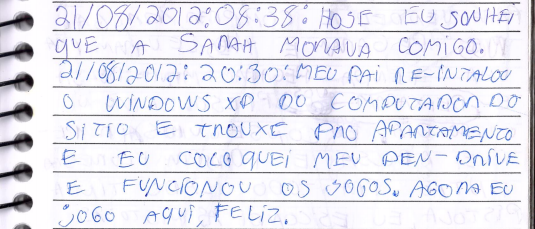 21/08/2012:08:38: HOSE EU SONHEI
QUE A SARAH MORAVA COMIGO.
21/08/2012: 20:30: MEU PAI RE-INTALOU
O WINDOWS XP DO COMPUTADOR DO
SITIO E TROUXE PRO APARTAMENTO
E EU COLOQUEI MEU PEN-DRIVE
E FUNCIONOU OS JOGOS. AGORA EU
JOGO AQUI, FELIZ.